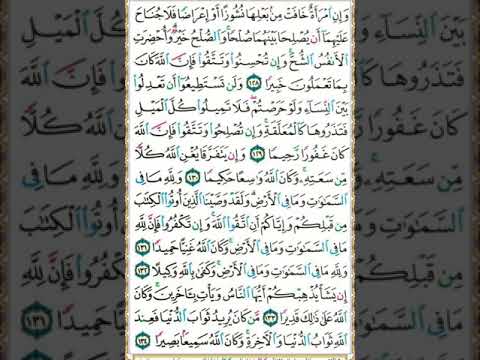 وَإِنِ ٱمْرَأَةٌ خَافَتْ مِنۢ بَعْلِهَا نُشُوزًا أَوْ إِعْرَاضًا فَلَا جُنَاحَ
عَلَيْهِمَآ أَن يُصْلِحَا بَيْنَهُمَا صُلْحًا ۚ وَٱلصُّلْحُ خَيْرٌ ۗ وَأُحْضِرَتِ
ٱلْأَنفُسُ ٱلشُّحَّ ۚ وَإِن تُحْسِنُوا۟ وَتَتَّقُوا۟ فَإِنَّ ٱللَّهَ كَانَ
بِمَا تَعْمَلُونَ خَبِيرًا ١٢٨ وَلَن تَسْتَطِيعُوٓا۟ أَن تَعْدِلُوا۟
بَيْنَ ٱلنِّسَآءِ وَلَوْ حَرَصْتُمْ ۖ فَلَا تَمِيلُوا۟ كُلَّ ٱلْمَيْلِ
فَتَذَرُوهَا كَٱلْمُعَلَّقَةِ ۚ وَإِن تُصْلِحُوا۟ وَتَتَّقُوا۟ فَإِنَّ ٱللَّهَ
كَانَ غَفُورًا رَّحِيمًا ١٢٩ وَإِن يَتَفَرَّقَا يُغْنِ ٱللَّهُ كُلًّا
مِّن سَعَتِهِۦ ۚ وَكَانَ ٱللَّهُ وَٰسِعًا حَكِيمًا ١٣٠ وَلِلَّهِ مَا فِى
ٱلسَّمَٰوَٰتِ وَمَا فِى ٱلْأَرْضِ ۗ وَلَقَدْ وَصَّيْنَا ٱلَّذِينَ أُوتُوا۟ ٱلْكِتَٰبَ
مِن قَبْلِكُمْ وَإِيَّاكُمْ أَنِ ٱتَّقُوا۟ ٱللَّهَ ۚ وَإِن تَكْفُرُوا۟ فَإِنَّ لِلَّهِ
مَا فِى ٱلسَّمَٰوَٰتِ وَمَا فِى ٱلْأَرْضِ ۚ وَكَانَ ٱللَّهُ غَنِيًّا حَمِيدًا ١٣١
وَلِلَّهِ مَا فِى ٱلسَّمَٰوَٰتِ وَمَا فِى ٱلْأَرْضِ ۚ وَكَفَىٰ بِٱللَّهِ وَكِيلًا ١٣٢
إِن يَشَأْ يُذْهِبْكُمْ أَيُّهَا ٱلنَّاسُ وَيَأْتِ بِـَٔاخَرِينَ ۚ وَكَانَ
ٱللَّهُ عَلَىٰ ذَٰلِكَ قَدِيرًا ١٣٣ مَّن كَانَ يُرِيدُ ثَوَابَ ٱلدُّنْيَا فَعِندَ
ٱللَّهِ ثَوَابُ ٱلدُّنْيَا وَٱلْـَٔاخِرَةِ ۚ وَكَانَ ٱللَّهُ سَمِيعًۢا بَصِيرًا ١٣٤